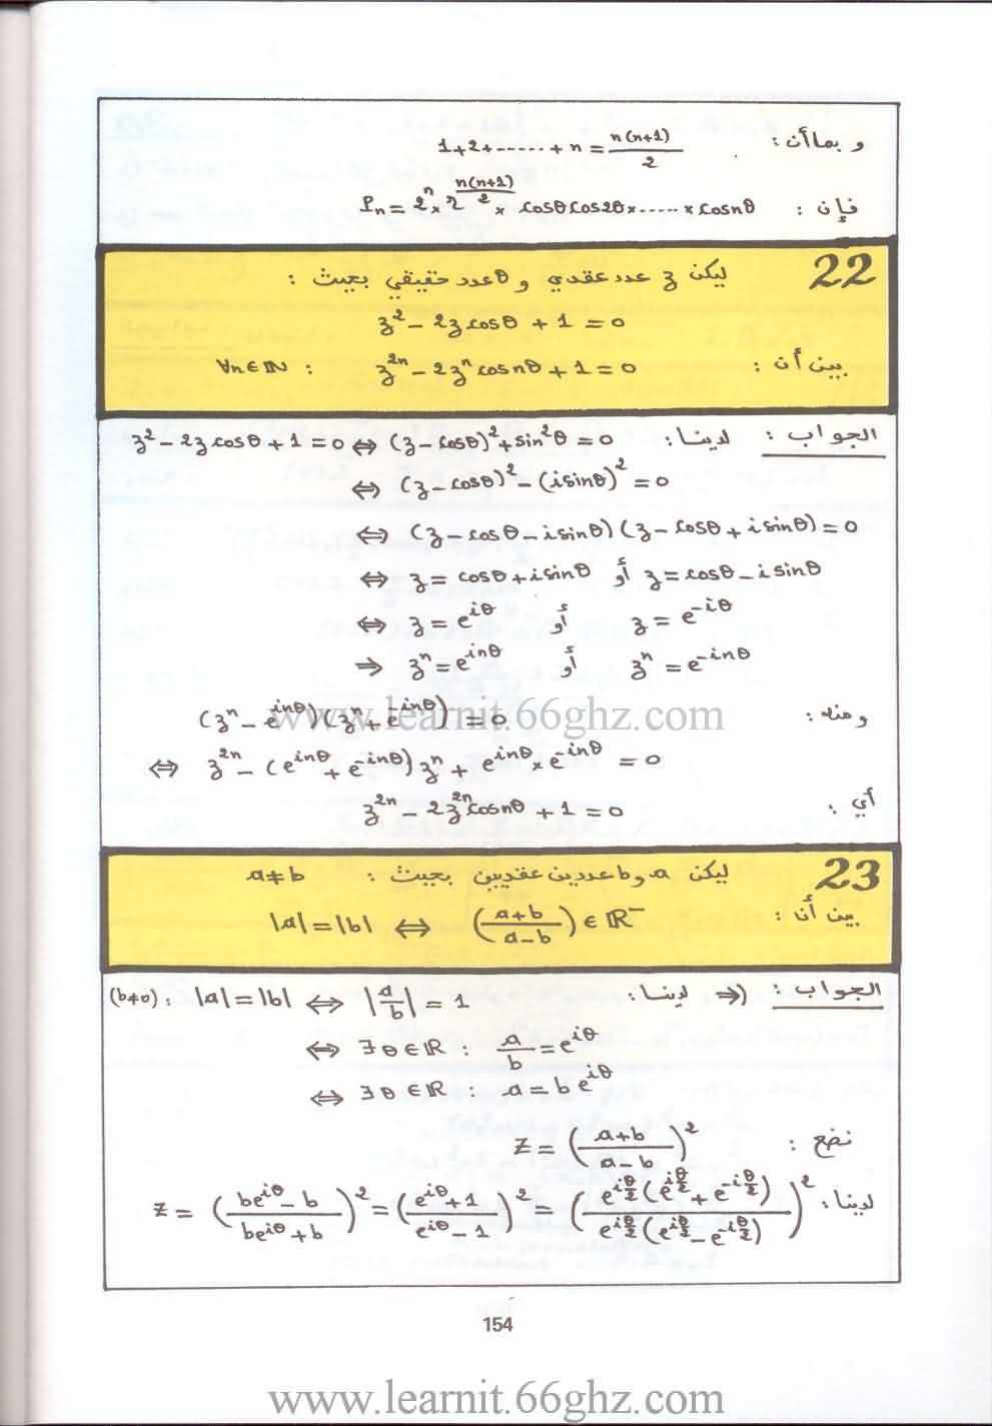 و بما أن : 1+2+-----+n = n(n+1)/2
فإن : Pn = 2^n × r^(n(n+1)/2) × cosθcos2θ×-----×cosnθ
22 ليكن z عدد عقدي و θ عدد حقيقي بحيث :
z² - 2z cosθ + 1 = 0
بين أن : ∀n∈ℕ : z^2n - 2z^n cosnθ + 1 = 0
الجواب : لدينا : z² - 2z cosθ + 1 = 0 ⇔ (z - cosθ)² + sin²θ = 0
⇔ (z - cosθ)² - (isinθ)² = 0
⇔ (z - cosθ - isinθ)(z - cosθ + isinθ) = 0
⇔ z = cosθ + isinθ أو z = cosθ - isinθ
⇔ z = e^iθ أو z = e^-iθ
⇒ z^n = e^inθ أو z^n = e^-inθ
ومنه : (z^n - e^inθ)(z^n + e^-inθ) = 0
www.learnit.66ghz.com
⇔ z^2n - (e^inθ + e^-inθ) z^n + e^inθ × e^-inθ = 0
أي : z^2n - 2z^2n cosnθ + 1 = 0
23 ليكن a و b عددين عقديين بحيث : a≠b
بين أن : |a| = |b| ⇔ ((a+b)/(a-b)) ∈ ℝ⁻
الجواب : (⇒ لدينا : (b≠0) : |a| = |b| ⇔ |a/b| = 1
⇔ ∃θ∈ℝ : a/b = e^iθ
⇔ ∃θ∈ℝ : a = be^iθ
نضع : Z = ((a+b)/(a-b))²
لدينا : Z = ((be^iθ - b)/(be^iθ + b))² = ((e^iθ + 1)/(e^iθ - 1))² = ((e^iθ/2 (e^iθ/2 + e^-iθ/2))/(e^iθ/2 (e^iθ/2 - e^-iθ/2)))²
154
www.learnit.66ghz.com